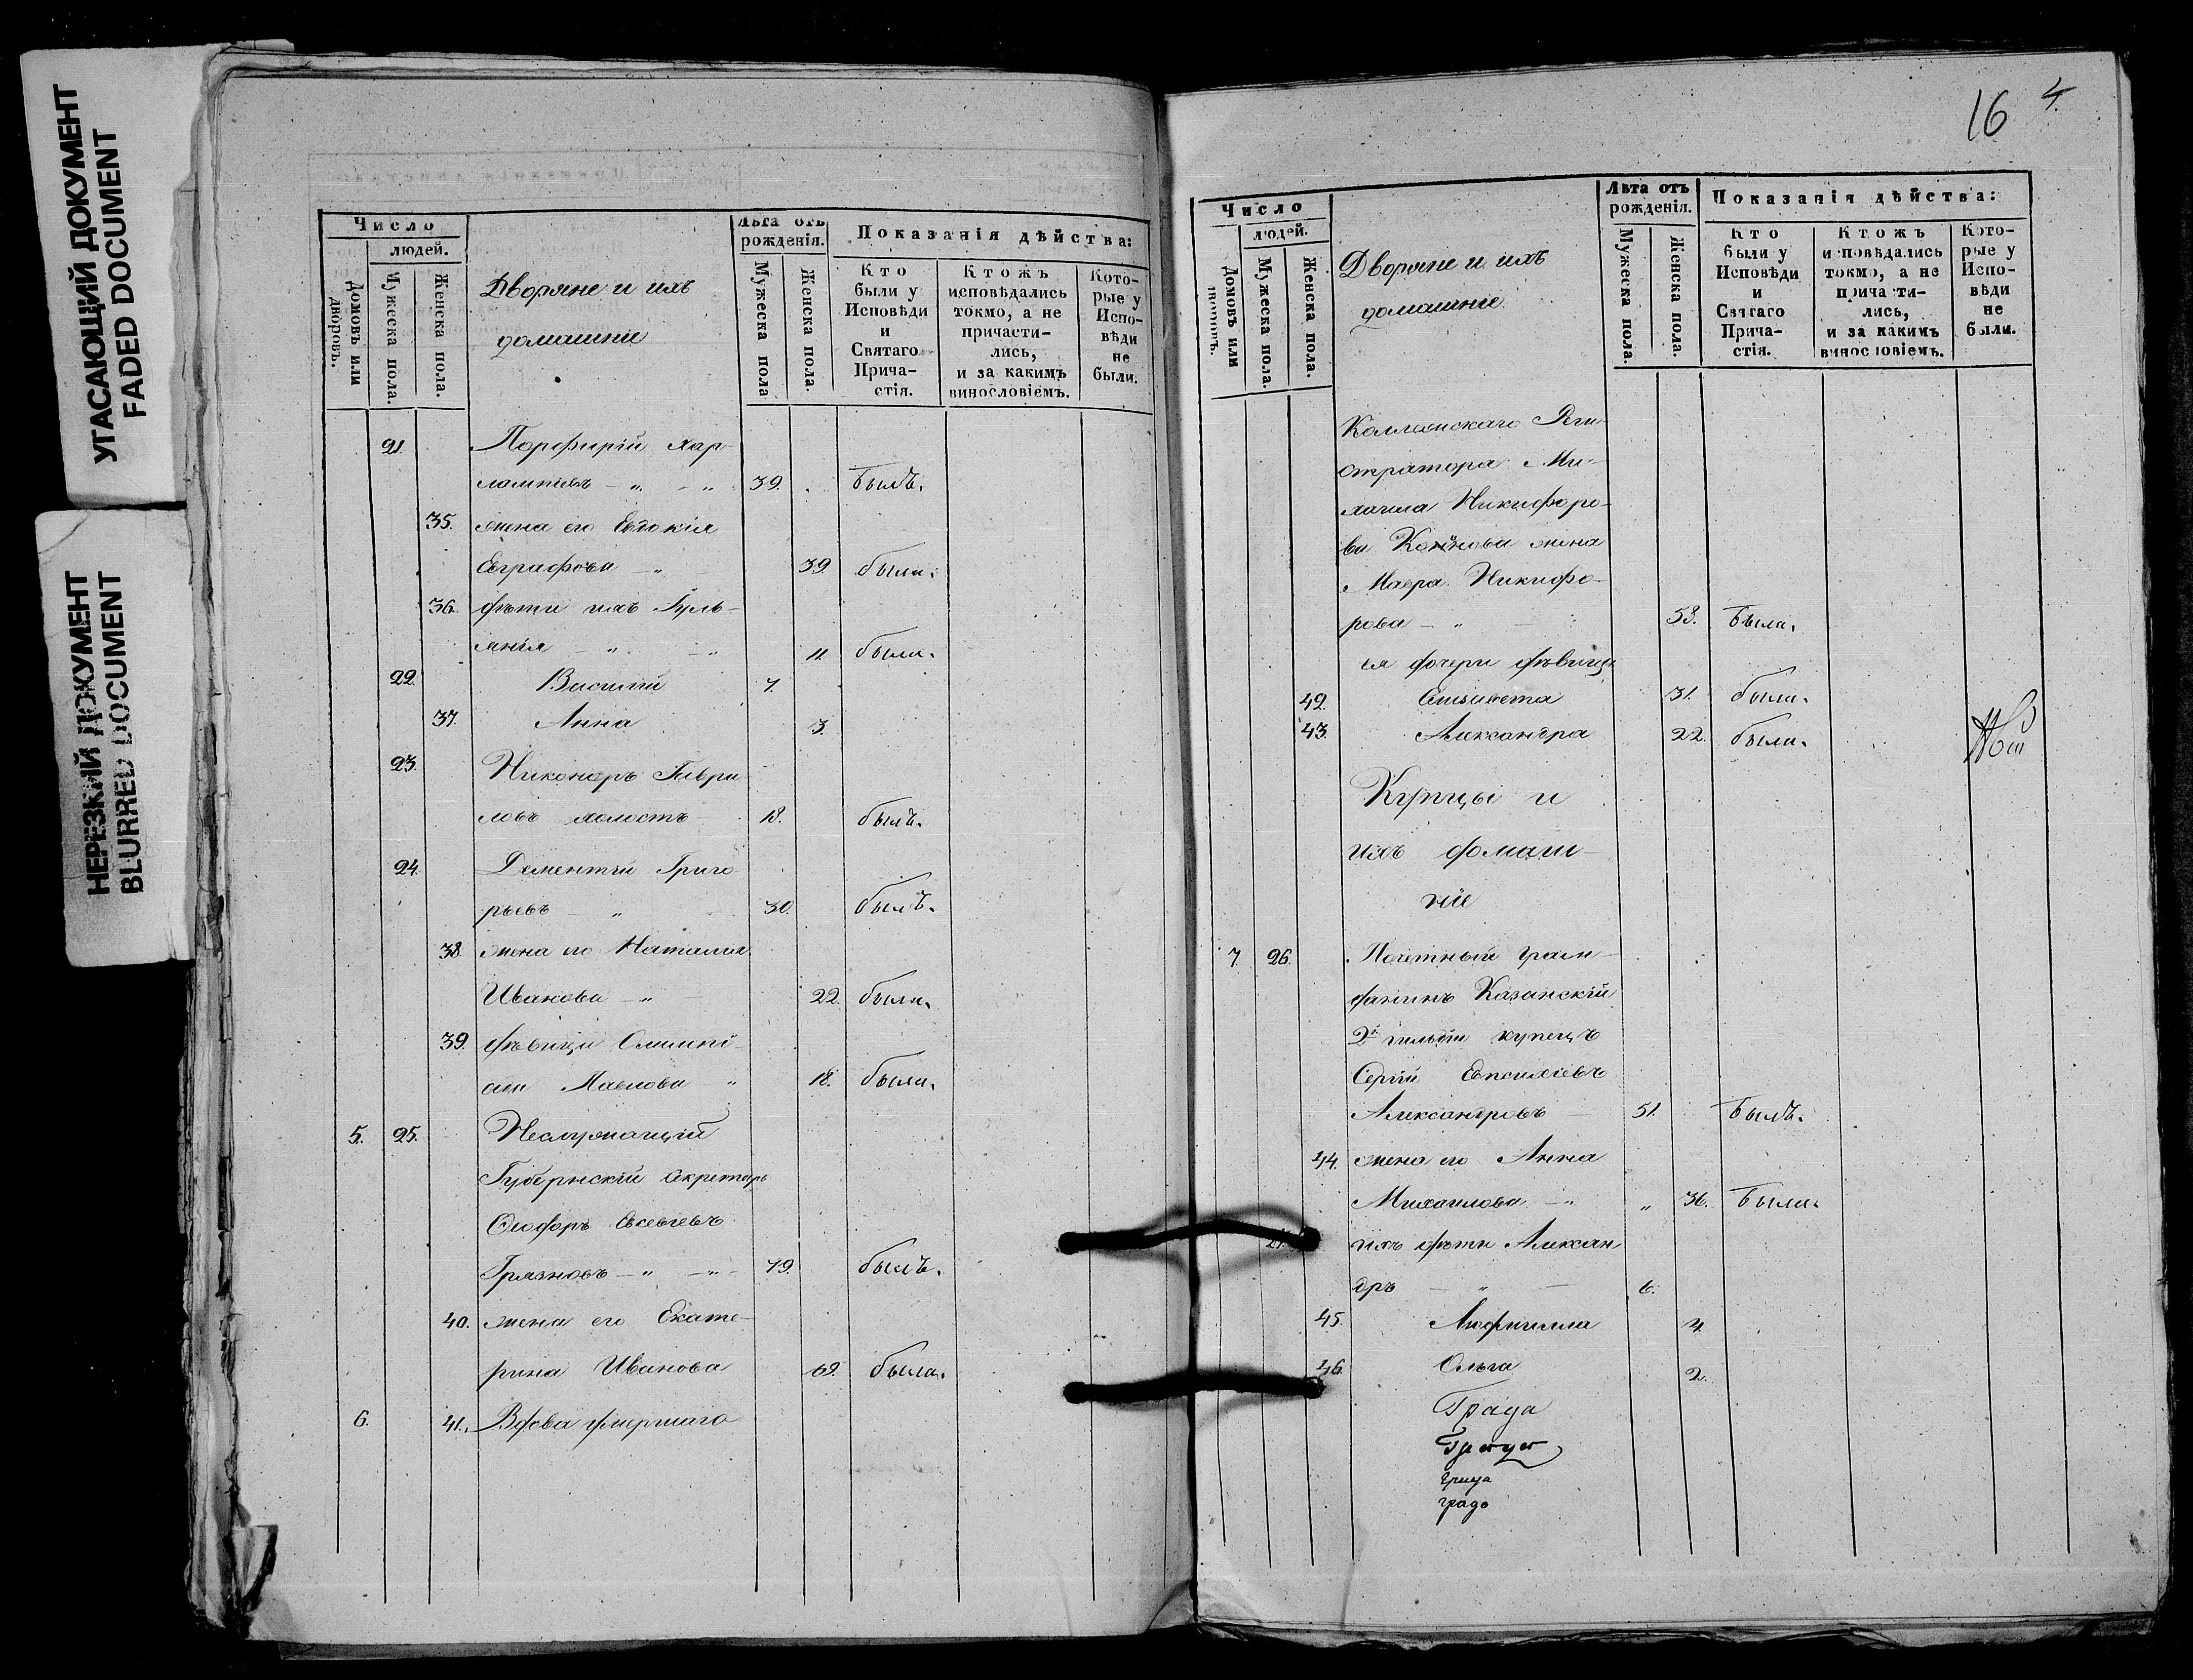 УГАСАЮЩИЙ ДОКУМЕНТ
FADED DOCUMENT
НЕРЕЗКИЙ ДОКУМЕНТ
BLURRED DOCUMENT
Число
людей.
Домовъ или дворовъ.
Мужеска пола.
Женска пола.
Дворяне и ихъ
домашніе
Лѣта отъ
рожденія.
Мужеска пола
Женска пола.
Показанія дѣйства:
Кто
были у
Исповѣди
и
Святаго
Прича-
стія.
Ктожъ
исповѣдались
токмо, а не
причасти-
лись,
и за какимъ
винословіемъ.
Кото-
рые у
Испо-
вѣди
не
были.
21. Порфирій Хар-
лампіевъ — „ — „ 39. былъ.
35. жена его Евдокія
Евграфова — „ 39. была.
36. дѣти ихъ Гуль-
янія — „ — „ 11. была.
22. Василій 7.
37. Анна 3.
23. Никоноръ Гаври
ловъ холостъ 18. былъ.
24. Дементій Григо
рьевъ — „ 30. былъ.
38. жена его Наталія
Иванова — „ 22. была.
39. дѣвица Олимпі-
ада Павлова „ 18. была.
5. 25. Неслужащій
Губернскій Секретарь
Ѳедоръ Евсевіевъ
Грязновъ — „ — „ — 79. былъ.
40. жена его Екате-
рина Иванова 69. была.
6. 41. Вдова умершаго
16 4.
Число
людей.
Домовъ или дворовъ.
Мужеска пола.
Женска пола.
Дворяне и ихъ
домашніе
Лѣта отъ
рожденія.
Мужеска пола.
Женска пола.
Показанія дѣйства:
Кто
были у
Исповѣди
и
Святаго
Прича-
стія.
Ктожъ
исповѣдались
токмо, а не
причасти-
лись,
и за какимъ
винословіемъ.
Кото-
рые у
Испо-
вѣди
не
были.
Коллежскаго Реги-
стратора Ми-
хаила Никифоро-
ва жена
Мавра Никифо-
рова — „ — 58. была.
ея дочери дѣвицы
42. Елизавета 31. была.
43. Александра 22. была.
Купцы и
ихъ домаш-
ніе
7. 26. Почетный граж-
данинъ Казанскій
2й гильдіи купецъ
Сергій Евпсихіевъ
Александровъ — 51. былъ.
44. жена его Анна
Михаилова — „ „ 36. была.
27. ихъ дѣти Алексан
дръ — „ — 6.
45. Людмилла 4.
46. Ольга 2.
Града
града